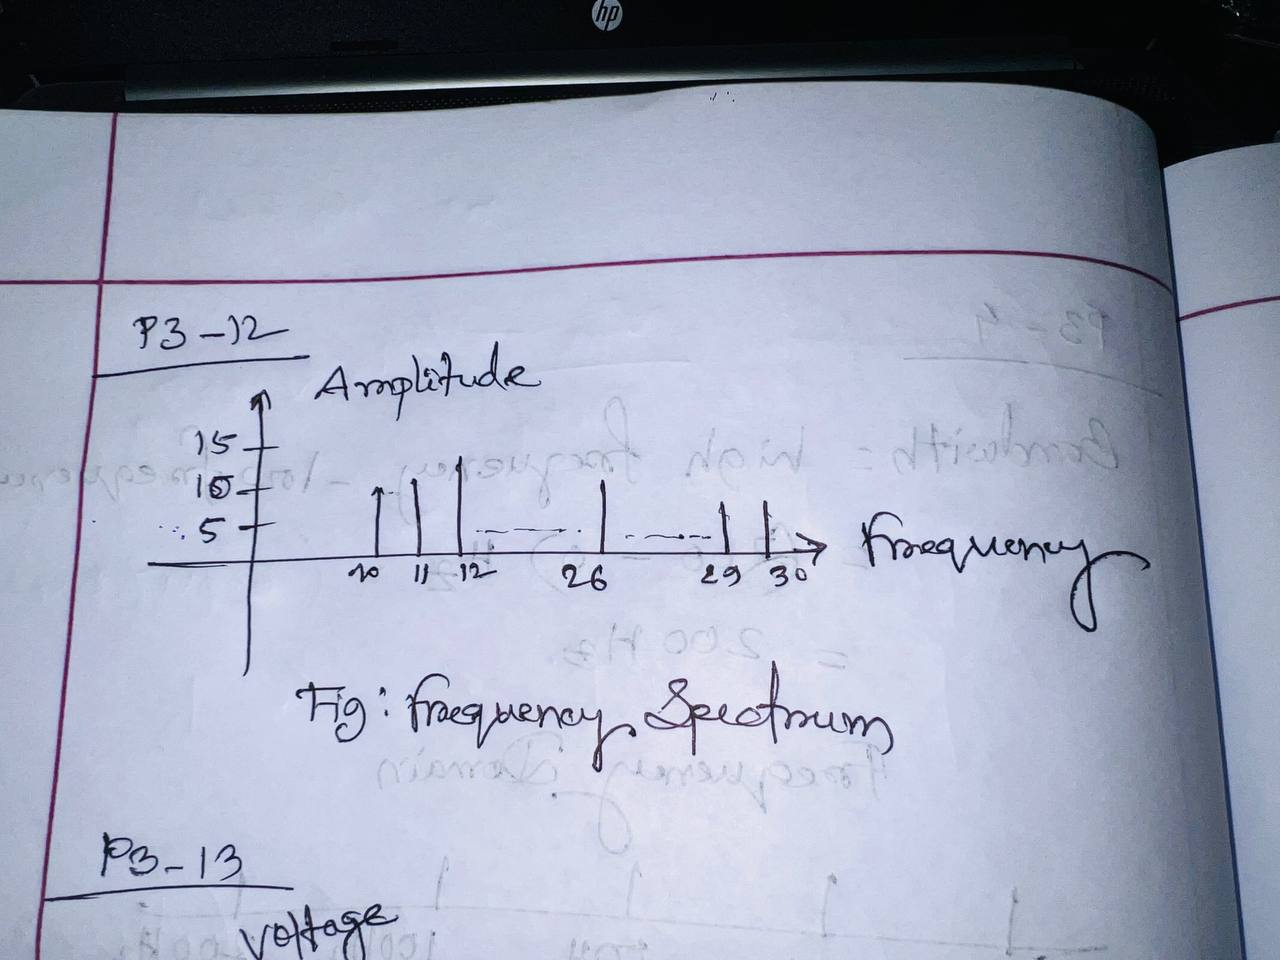 hp
P3-12
Amplitude
15
10
5
10 11 12 26 29 30
Frequency
Fig: Frequency Spectrum
P3-13
Voltage